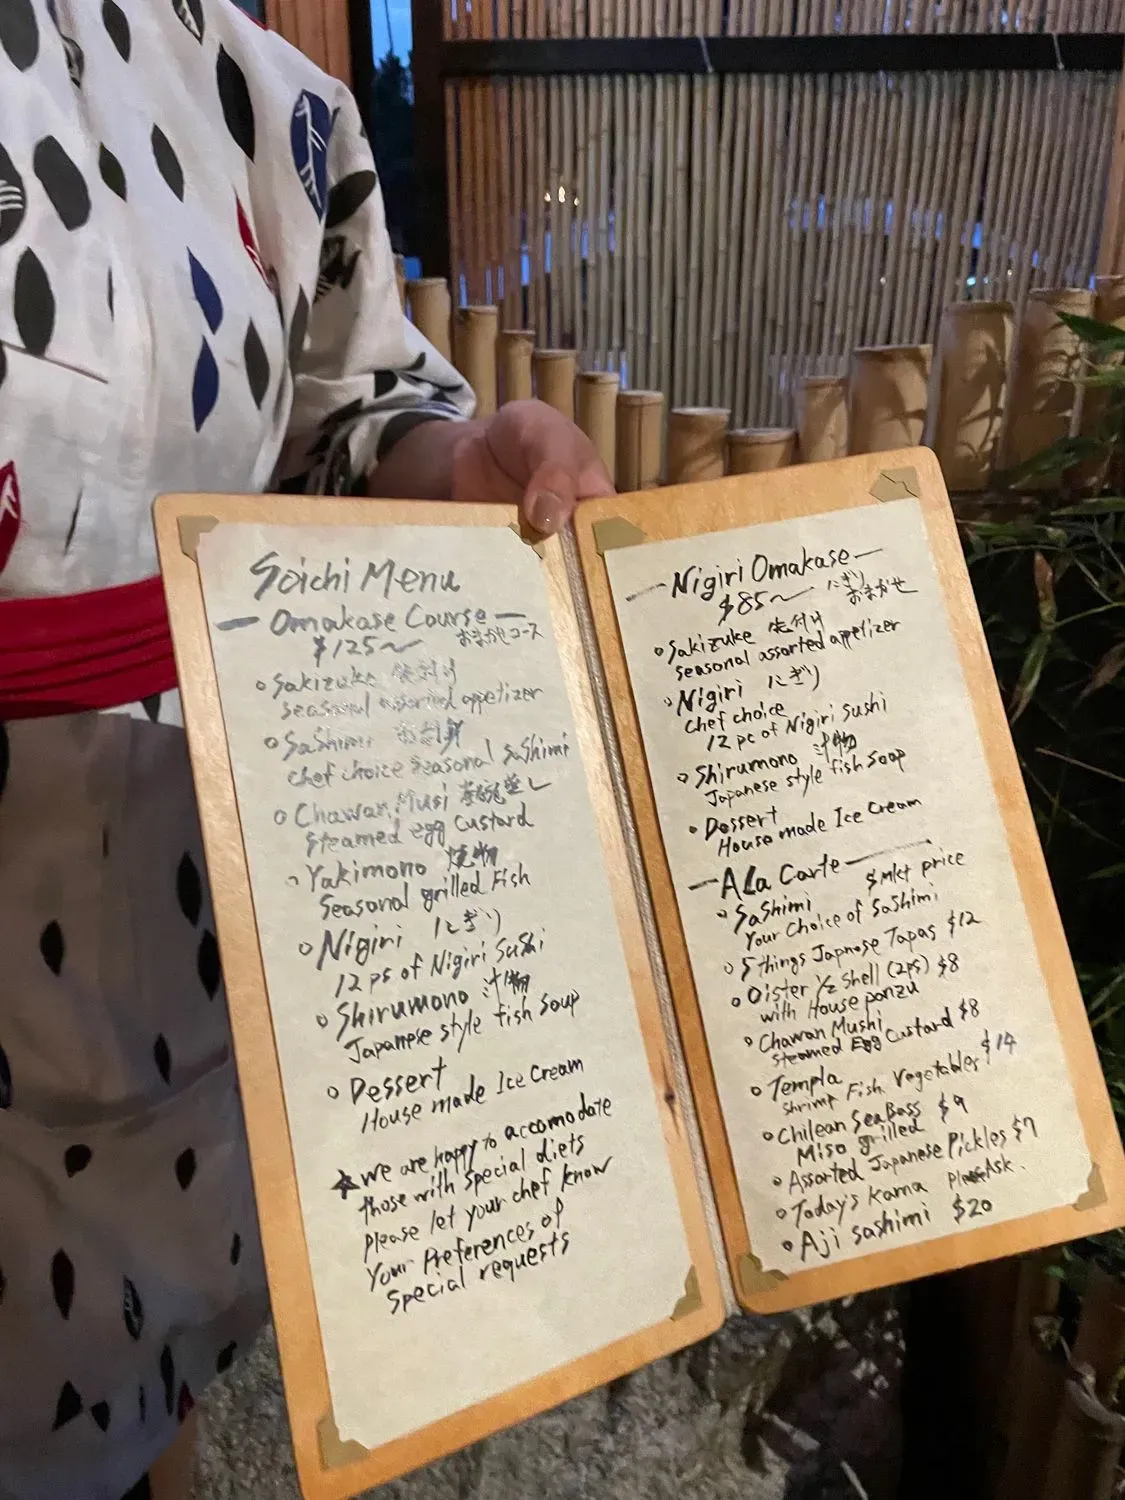 Soichi Menu
Omakase Course
$125~ おまかせコース
Sakizuke 先付け
seasonal assorted appetizer
Sashimi お刺身
chef choice seasonal sashimi
Chawan Musi 茶碗蒸し
steamed egg custard
Yakimono 焼物
Seasonal grilled Fish
Nigiri にぎり
12 ps of Nigiri Sushi
Shirumono 汁物
Japanese style fish soup
Dessert
House made Ice Cream
★ we are happy to accomodate
those with special diets
please let your chef know
your Preferences of
special requests
Nigiri Omakase
$85~ にぎり
おまかせ
Sakizuke 先付け
seasonal assorted appetizer
Nigiri にぎり
chef choice
12 pc of Nigiri Sushi
Shirumono 汁物
Japanese style fish soup
Dessert
House made Ice Cream
A La Carte
Sashimi $ mkt price
Your Choice of Sashimi
5 things Japnese Tapas $12
Oister 1/2 Shell (2ps) $8
with House ponzu
Chawan Mushi
steamed Egg Custard $8
Templa
shrimp Fish Vegetables $14
Chilean Sea Bass $9
Miso grilled
Assorted Japanese Pickles $7
Today's Kama Please Ask.
Aji sashimi $20